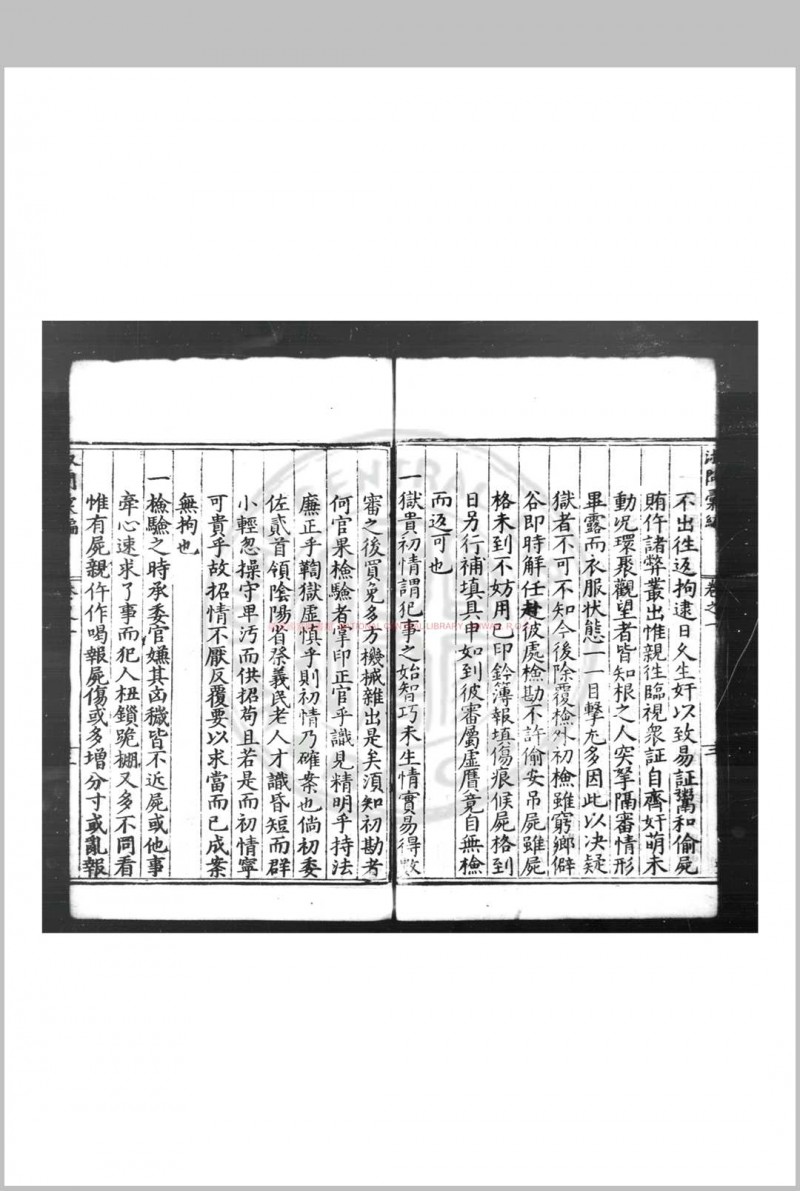 不出徃返拘逮日乆生奸以致易証鬻和偷屍
賄仵諸弊叢出惟親徃臨視衆証自齊奸萌未
動況環聚觀望者皆知根之人突拏隔審情形
畢露而衣服状態一一目擊尤多因此以决疑
獄者不可不知今後除覆檢外初檢雖窮鄉僻
谷即時解任赴彼處檢勘不許偷安吊屍雖屍
格未到不妨用已印鈐簿報填傷痕候屍格到
日另行補填具申如到彼審屬虛贗竟自無檢
而返可也
一獄貴初情謂犯事之始智巧未生情實易得數
審之後買免多方機械雜出是矣須知初勘者
何官果檢驗者掌印正官乎識見精明乎持法
廉正乎鞫獄虛慎乎則初情乃確案也倘初委
佐貳首領陰陽省祭義民老人才識昏短而群
小輕忽操守卑汚而供招苟且若是而初情寧
可貴乎故招情不厭反覆要以求當而已成案
無拘也
一檢驗之時承委官嫌其凶穢皆不近屍或他事
牽心速求了事而犯人杻鎖跪棚又多不同看
惟有屍親仵作喝報屍傷或多增分寸或亂報
卷之十